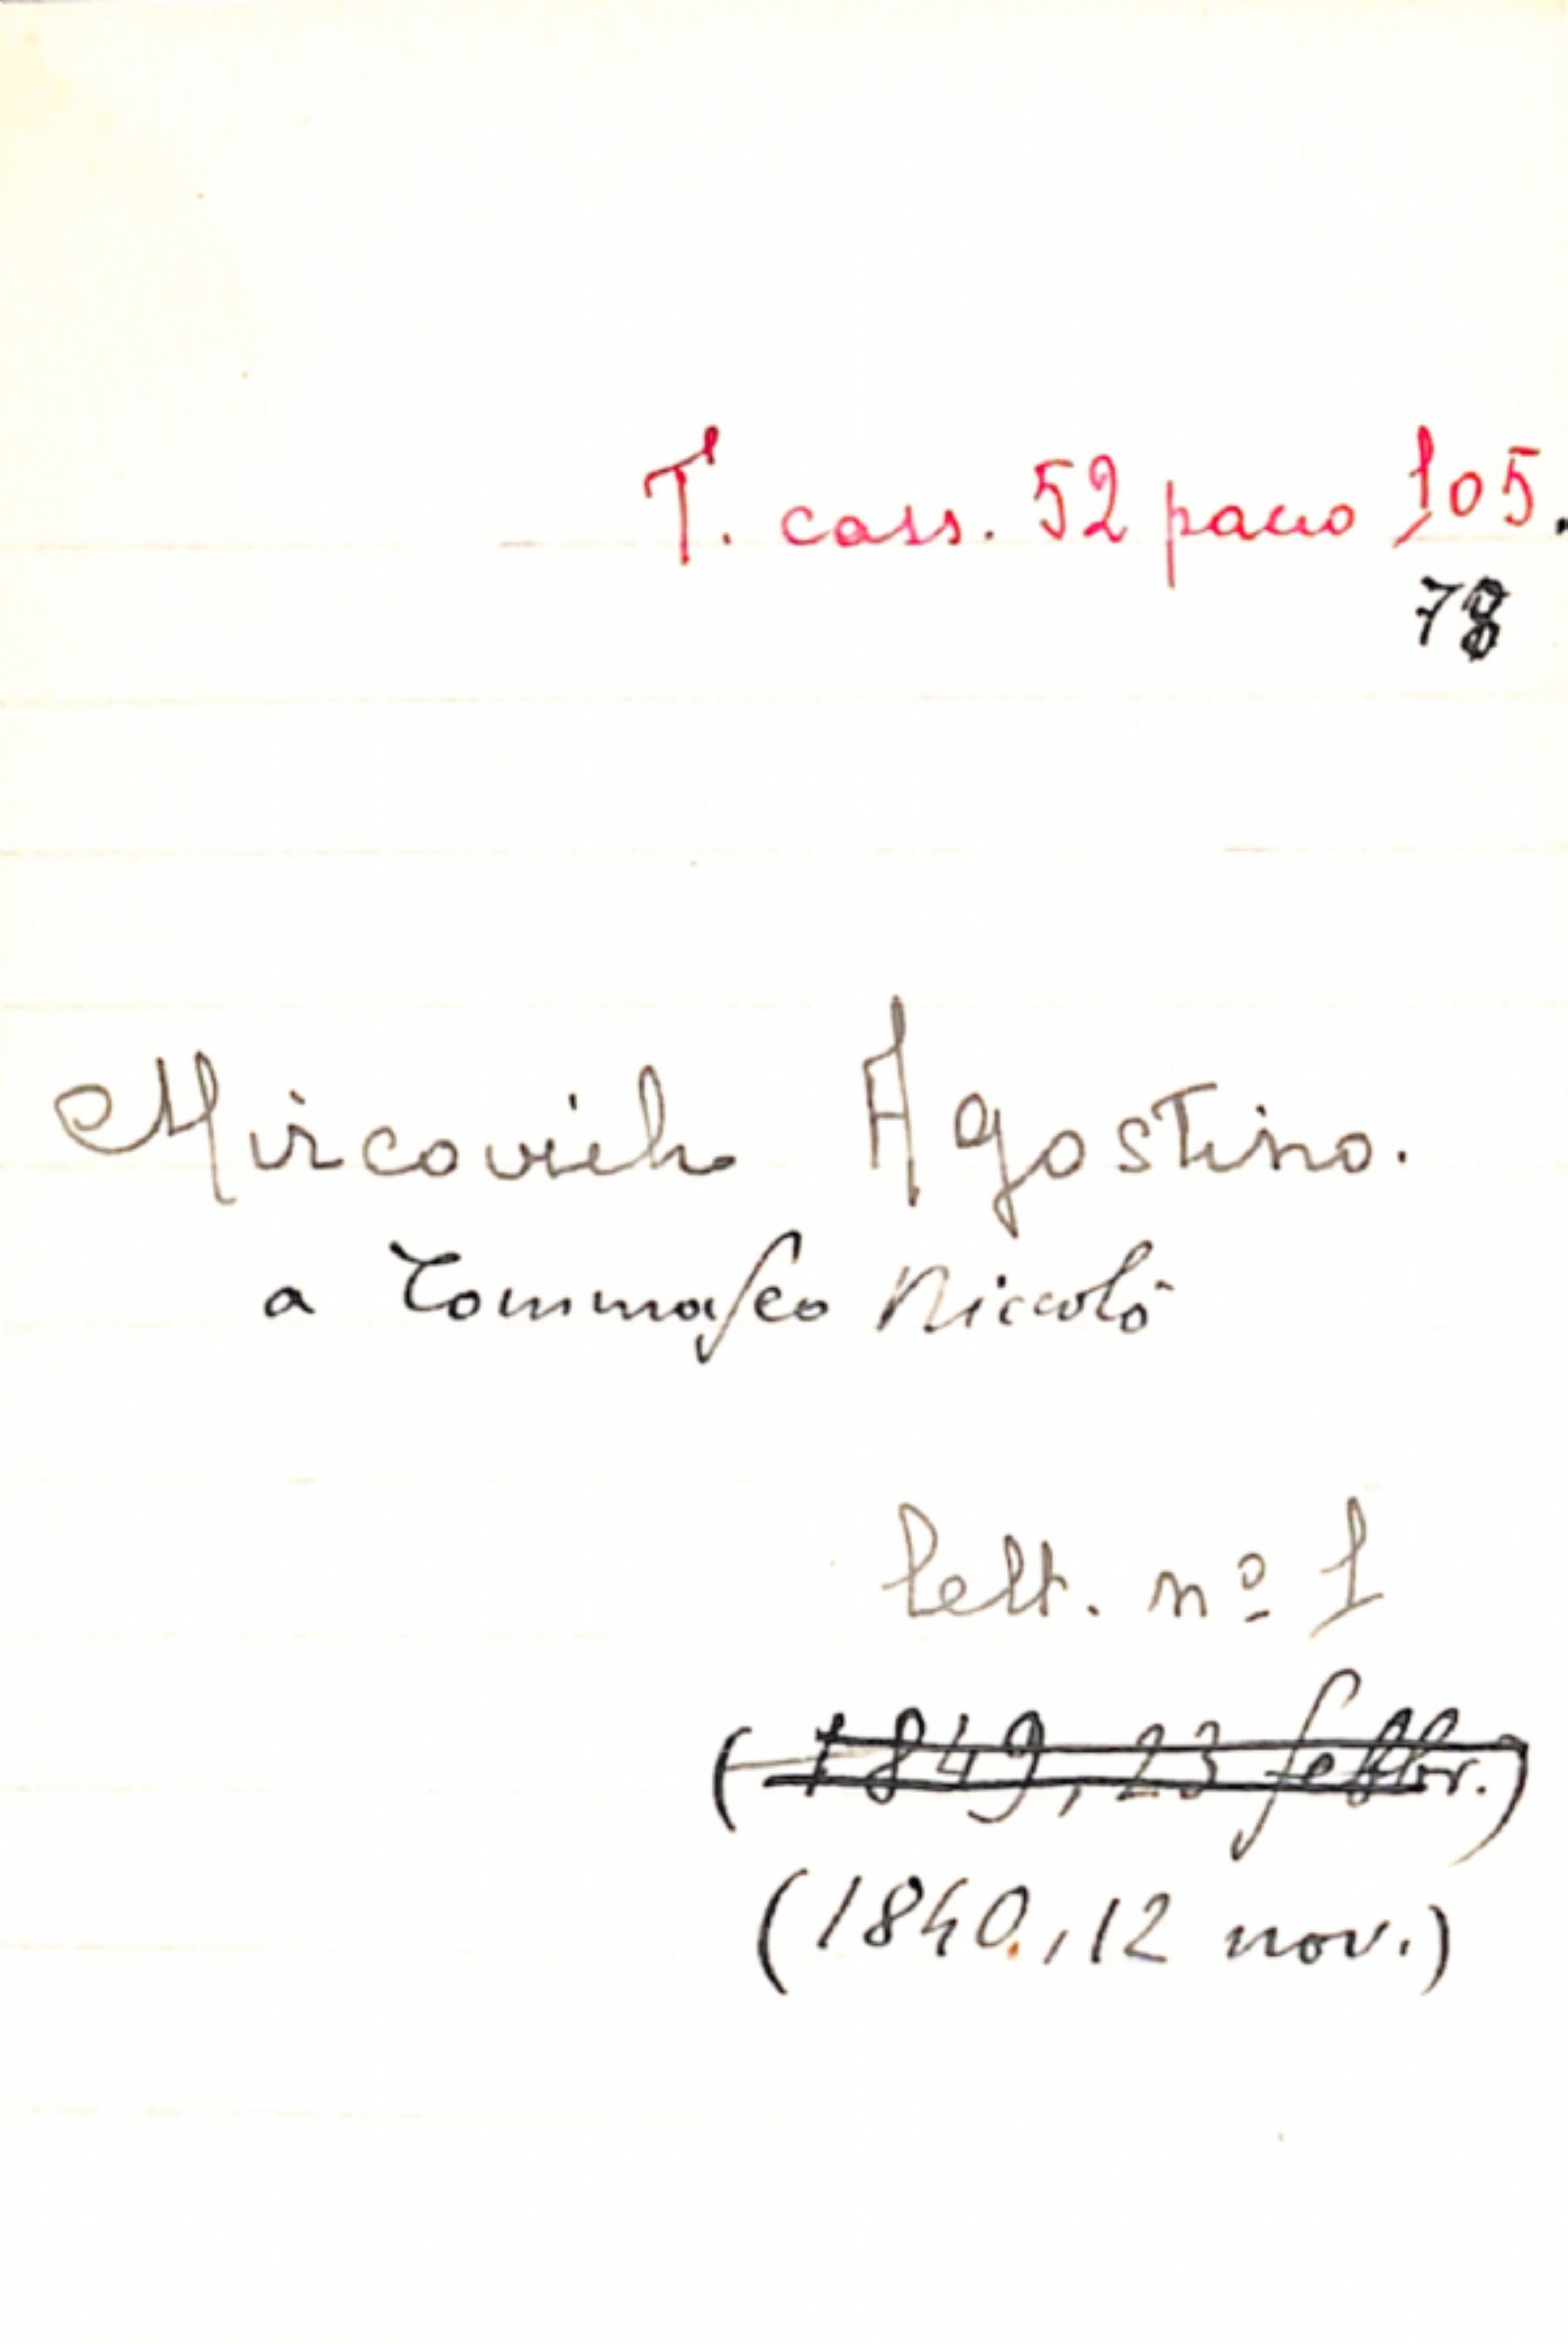 T. cass. 52 pacco 105.
78
Mircovich Agostino.
a Tommaseo Niccolò
lett. nº 1
(1849, 23 febbr.)
(1840, 12 nov.)